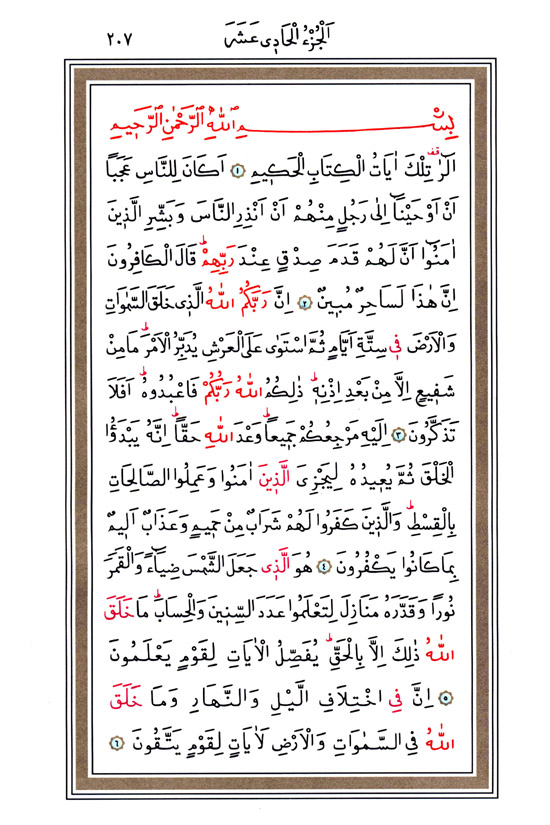 اَلْجُزْءُ الْحَادِى عَشَرَ ٢٠٧
بِسْمِ اللّٰهِ الرَّحْمٰنِ الرَّحٖيمِ
الٓرٰ تِلْكَ اٰيَاتُ الْكِتَابِ الْحَكٖيمِ ١ اَكَانَ لِلنَّاسِ عَجَباً
اَنْ اَوْحَيْنَٓا اِلٰى رَجُلٍ مِنْهُمْ اَنْ اَنْذِرِ النَّاسَ وَبَشِّرِ الَّذٖينَ
اٰمَنُٓوا اَنَّ لَهُمْ قَدَمَ صِدْقٍ عِنْدَ رَبِّهِمْؕ قَالَ الْكَافِرُونَ
اِنَّ هٰذَا لَسَاحِرٌ مُبٖينٌ ٢ اِنَّ رَبَّكُمُ اللّٰهُ الَّذٖى خَلَقَ السَّمٰوَاتِ
وَالْاَرْضَ فٖى سِتَّةِ اَيَّامٍ ثُمَّ اسْتَوٰى عَلَى الْعَرْشِ يُدَبِّرُ الْاَمْرَؕ مَا مِنْ
شَفٖيعٍ اِلَّا مِنْ بَعْدِ اِذْنِهٖؕ ذٰلِكُمُ اللّٰهُ رَبُّكُمْ فَاعْبُدُوهُؕ اَفَلَا
تَذَكَّرُونَ ٣ اِلَيْهِ مَرْجِعُكُمْ جَمٖيعاًؕ وَعْدَ اللّٰهِ حَقاًّؕ اِنَّهُ يَبْدَؤُا
الْخَلْقَ ثُمَّ يُعٖيدُهُ لِيَجْزِىَ الَّذٖينَ اٰمَنُوا وَعَمِلُوا الصَّالِحَاتِ
بِالْقِسْطِؕ وَالَّذٖينَ كَفَرُوا لَهُمْ شَرَابٌ مِنْ حَمٖيمٍ وَعَذَابٌ اَلٖيمٌ
بِمَا كَانُوا يَكْفُرُونَ ٤ هُوَ الَّذٖى جَعَلَ الشَّمْسَ ضِيَٓاءً وَالْقَمَرَ
نُوراً وَقَدَّرَهُ مَنَازِلَ لِتَعْلَمُوا عَدَدَ السِّنٖينَ وَالْحِسَابَؕ مَا خَلَقَ
اللّٰهُ ذٰلِكَ اِلَّا بِالْحَقِّؕ يُفَصِّلُ الْاٰيَاتِ لِقَوْمٍ يَعْلَمُونَ
٥ اِنَّ فٖى اخْتِلَافِ الَّيْلِ وَالنَّهَارِ وَمَا خَلَقَ
اللّٰهُ فِى السَّمٰوَاتِ وَالْاَرْضِ لَاٰيَاتٍ لِقَوْمٍ يَتَّقُونَ ٦